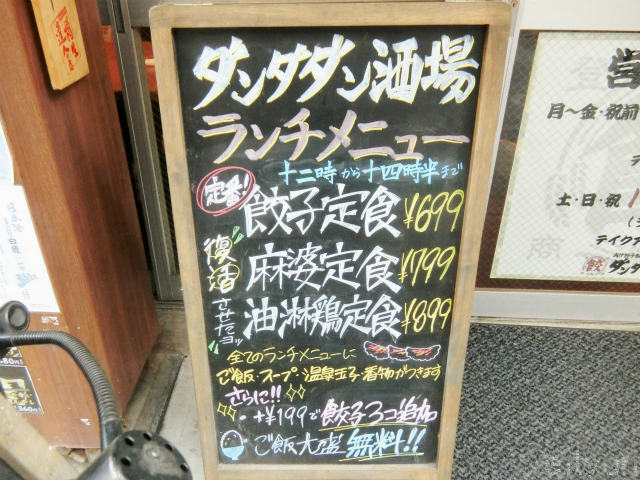 ダンダダン酒場
ランチメニュー
十二時から十四時半まで
定番!
餃子定食 ¥699
復活させたヨッ
麻婆定食 ¥799
油淋鶏定食 ¥899
全てのランチメニューに
ご飯・スープ・温泉玉子・香物がつきます
さらに!!
・+¥199で餃子3コ追加
・ご飯大盛無料!!
営
月〜金・祝前
土・日・祝
テイクア
餃 ダン
80円
360円